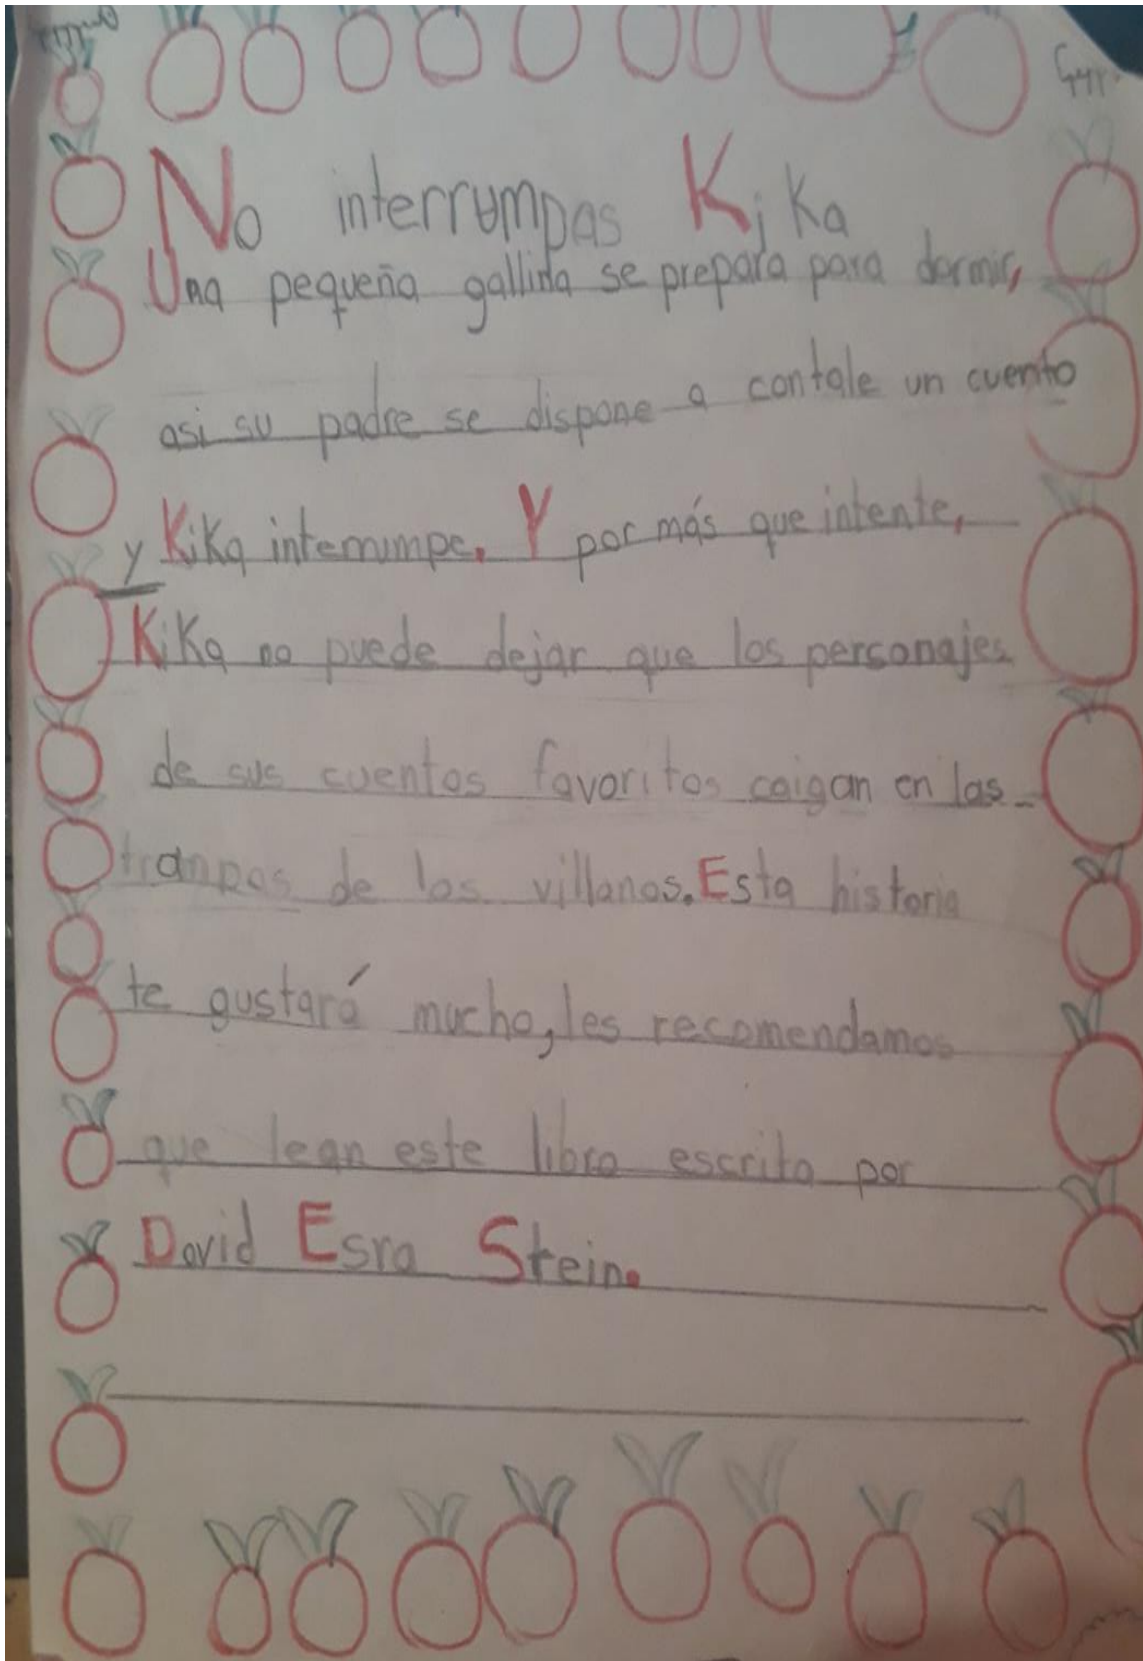 No interrumpas Kika
Una pequeña gallina se prepara para dormir,
asi su padre se dispone a contale un cuento
y Kika interrumpe. Y por más que intente,
Kika no puede dejar que los personajes
de sus cuentos favoritos caigan en las
trampas de los villanos. Esta historia
te gustará mucho, les recomendamos
que lean este libro escrito por
David Esra Stein.